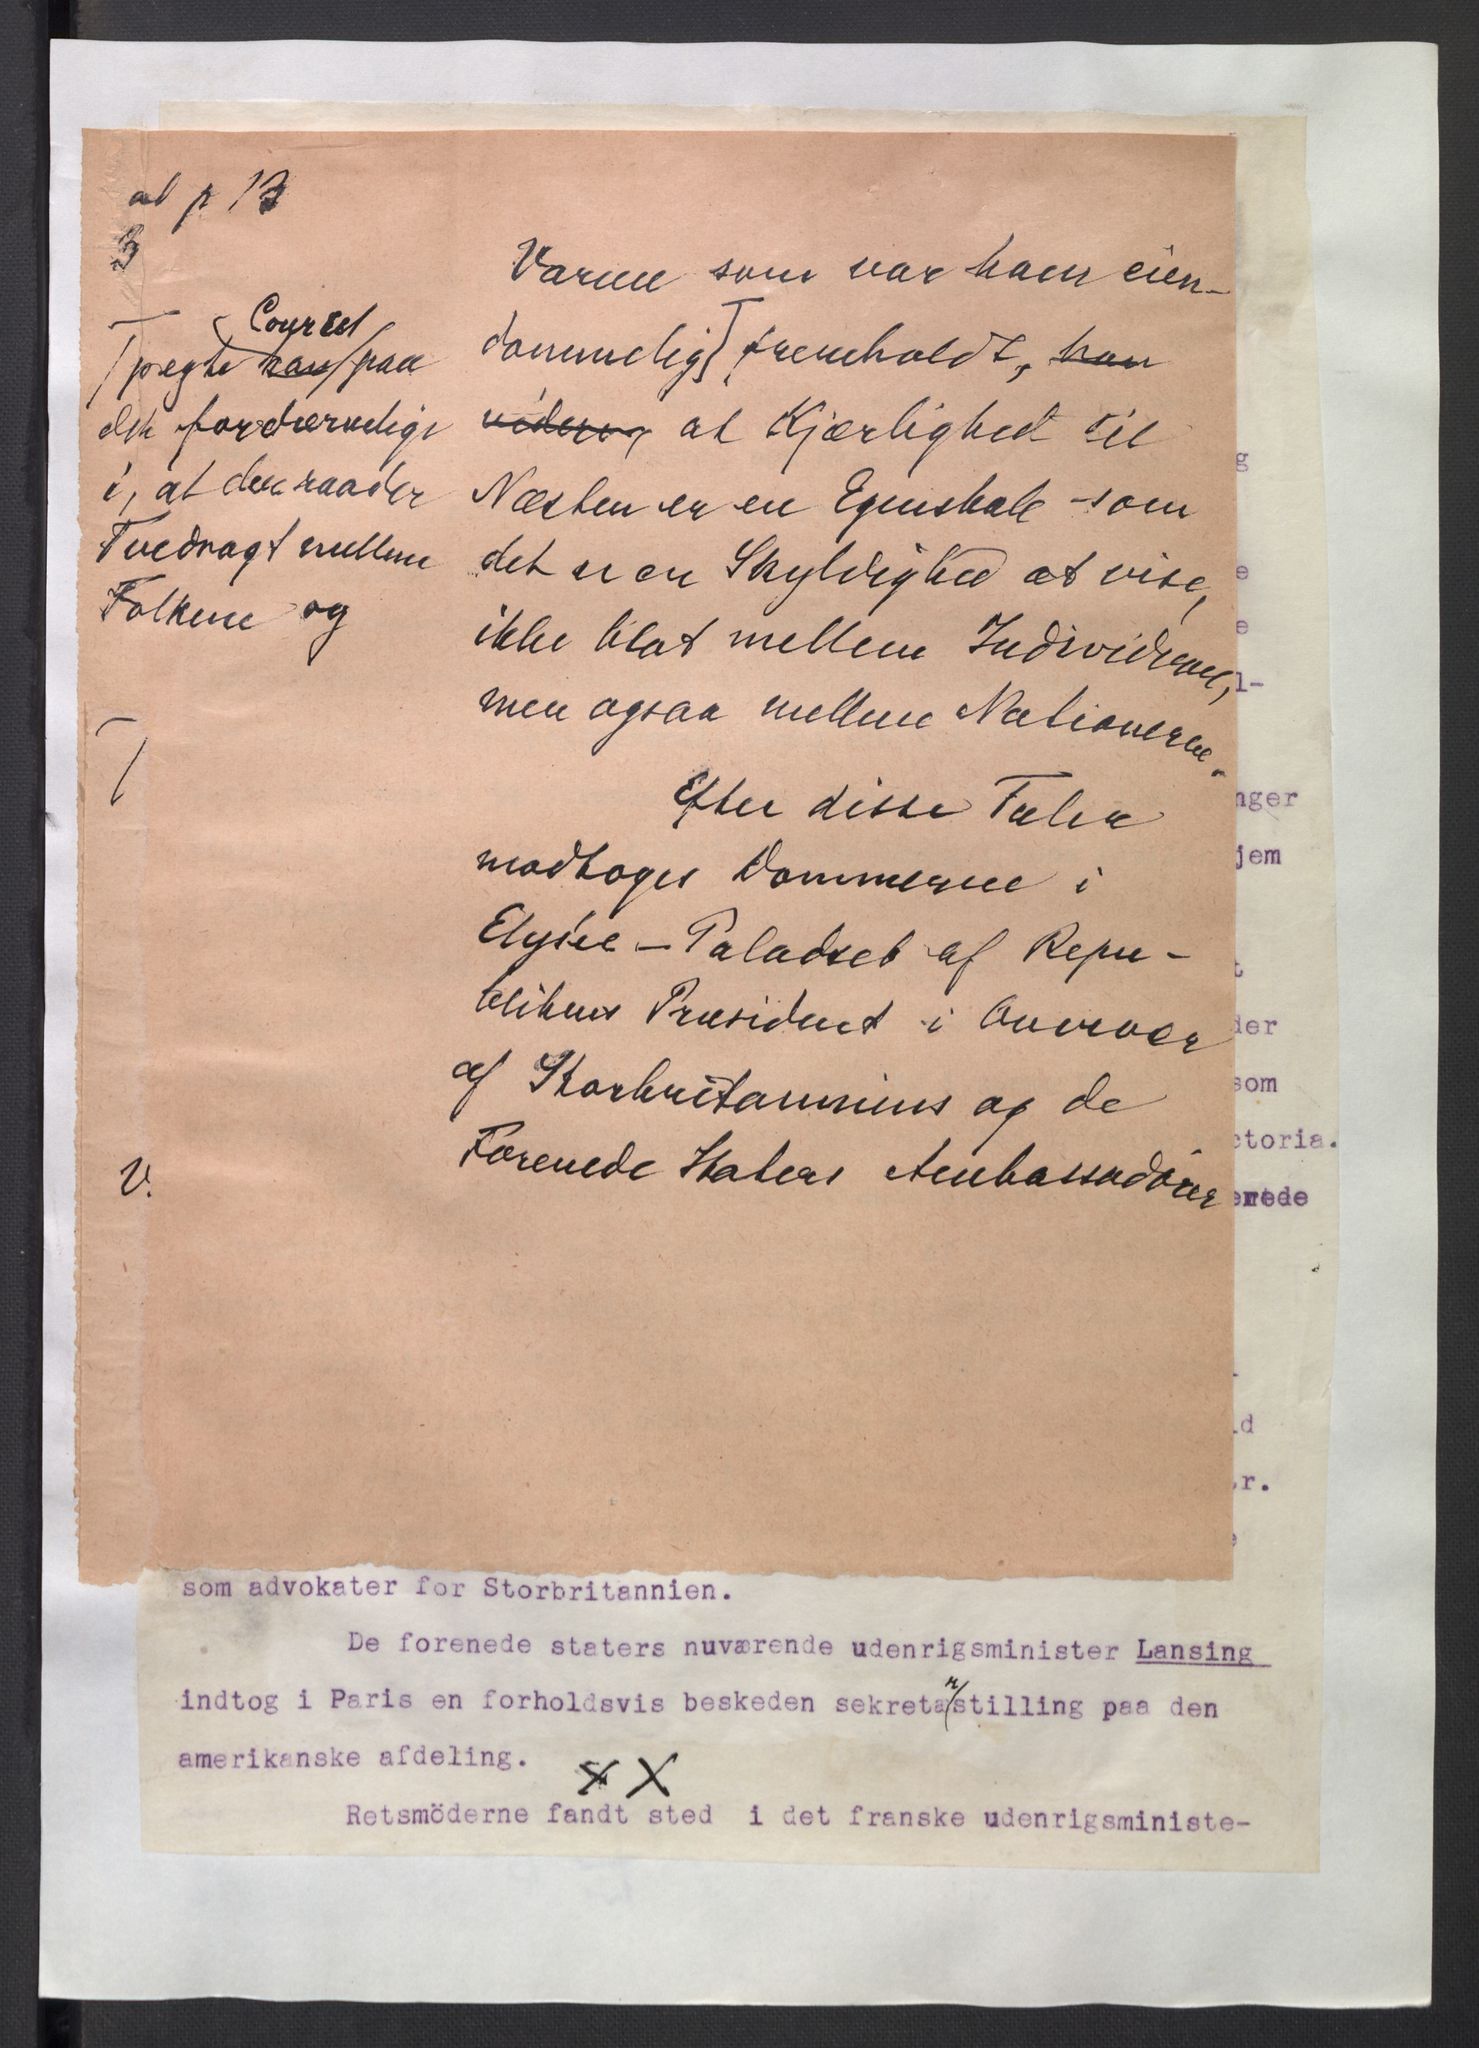 ad p 13
3
Coursel
⎡ pegte han paa
det fordærvelige
i, at der raader
Tvedragt mellem
Folkene og
⎡
V.
Varme som var ham eien-
dommelig] ⎡ fremholdt, han
videre, at Kjærlighed til
Næsten er en Egenskab som
det er en Skyldighed at vise,
ikke blot mellem Individerne,
men ogsaa mellem Nationerne.
Efter disse Taler
modtoges Dommerne i
Elysée-Paladset af Repu-
blikens Præsident i Overvær
af Storbritanniens og de
Forenede Staters Ambassadører
g
e
e
l-
nger
jem
t
der
som
ctoria.
erede
-
ld
r.
e
som advokater for Storbritannien.
De forenede staters nuværende udenrigsminister Lansing
indtog i Paris en forholdsvis beskeden sekretærstilling paa den
amerikanske afdeling.
X X
Retsmöderne fandt sted i det franske udenrigsministe-